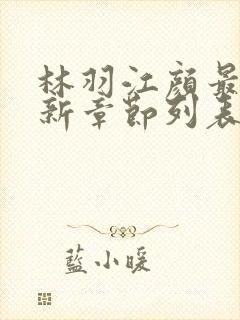 林羽江顔最
新章節列表
藍小暖